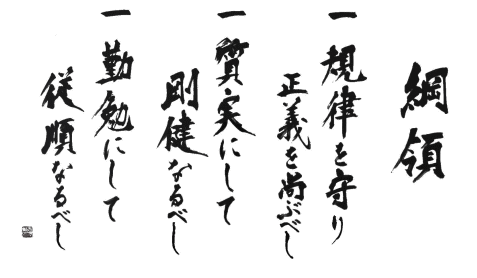 綱領
一 規律を守り
正義を尚ぶべし
一 質実にして
剛健なるべし
一 勤勉にして
従順なるべし